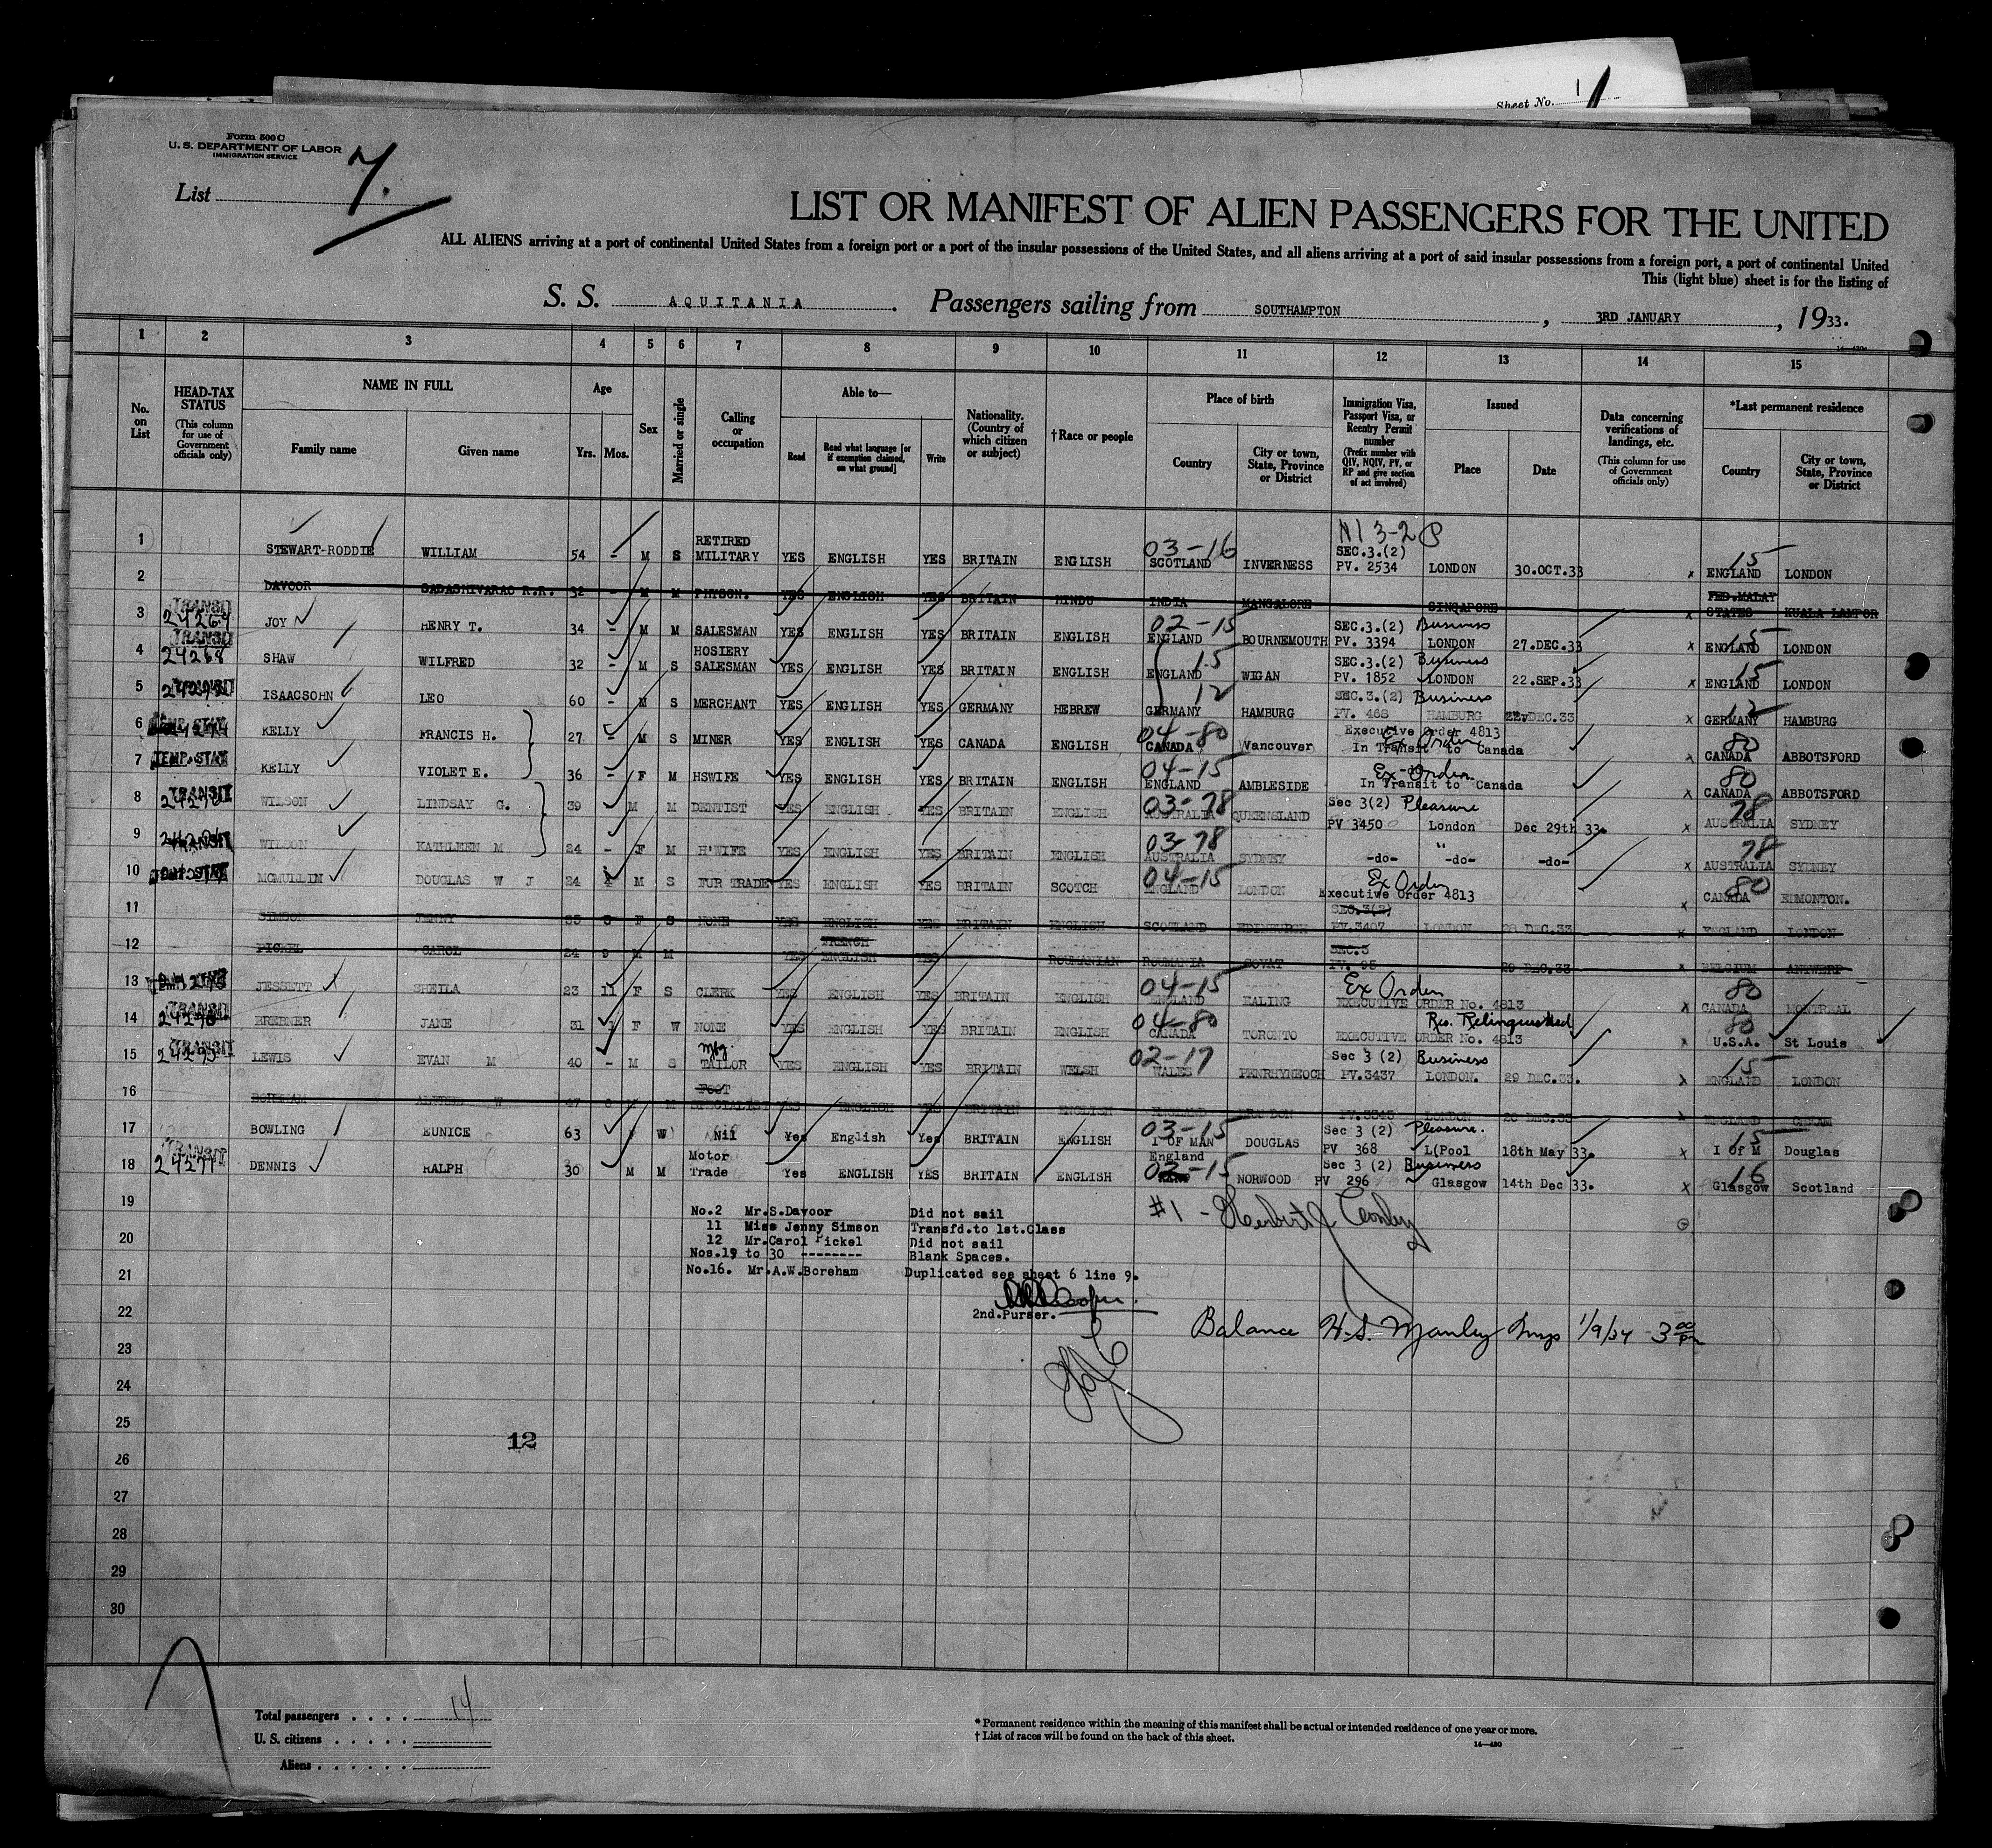 Sheet No. 1
Form 500 C
U. S. DEPARTMENT OF LABOR
IMMIGRATION SERVICE
List 7.
LIST OR MANIFEST OF ALIEN PASSENGERS FOR THE UNITED
ALL ALIENS arriving at a port of continental United States from a foreign port or a port of the insular possessions of the United States, and all aliens arriving at a port of said insular possessions from a foreign port, a port of continental United
This (light blue) sheet is for the listing of
S. S. AQUITANIA. Passengers sailing from SOUTHAMPTON, 3RD JANUARY, 1933.
1 2 3 4 5 6 7 8 9 10 11 12 13 14 15
No. on List
HEAD-TAX STATUS (This column for use of Government officials only)
NAME IN FULL
Family name Given name
Age
Yrs. Mos.
Sex
Married or single
Calling or occupation
Able to—
Read Read what language [or if exemption claimed, on what ground] Write
Nationality. (Country of which citizen or subject)
†Race or people
Place of birth
Country City or town, State, Province or District
Immigration Visa, Passport Visa, or Reentry Permit number (Prefix number with QIV, NQIV, PV, or RP and give section of act involved)
Issued
Place Date
Data concerning verifications of landings, etc. (This column for use of Government officials only)
*Last permanent residence
Country City or town, State, Province or District
1 STEWART-RODDIE WILLIAM 54 - M S RETIRED MILITARY YES ENGLISH YES BRITAIN ENGLISH 03-16 SCOTLAND INVERNESS SEC.3.(2) PV. 2534 LONDON 30.OCT.33 x 15 ENGLAND LONDON
2 DAVOOR SADASHIVARAO R.R. 32 - M M PHYSCN. YES ENGLISH YES BRITAIN HINDU INDIA MANGALORE SINGAPORE x FED.MALAY STATES KUALA LAMPOR
3 TRANSIT 24264 JOY HENRY T. 34 - M M SALESMAN YES ENGLISH YES BRITAIN ENGLISH 02-15 ENGLAND BOURNEMOUTH SEC.3.(2) Business PV. 3394 LONDON 27.DEC.33 x 15 ENGLAND LONDON
4 TRANSIT 24268 SHAW WILFRED 32 - M S HOSIERY SALESMAN YES ENGLISH YES BRITAIN ENGLISH 15 ENGLAND WIGAN SEC.3.(2) Business PV. 1852 LONDON 22.SEP.33 x 15 ENGLAND LONDON
5 TRANSIT ISAACSOHN LEO 60 - M S MERCHANT YES ENGLISH YES GERMANY HEBREW 12 GERMANY HAMBURG SEC.3.(2) Business PV. 468 HAMBURG 22.DEC.33 x 12 GERMANY HAMBURG
6 TEMP. STAY KELLY FRANCIS H. 27 - M S MINER YES ENGLISH YES CANADA ENGLISH 04-80 CANADA Vancouver Executive Order 4813 Ex Order In Transit to Canada x 80 CANADA ABBOTSFORD
7 TEMP. STAY KELLY VIOLET E. 36 - F M HSWIFE YES ENGLISH YES BRITAIN ENGLISH 04-15 ENGLAND AMBLESIDE Ex Order In Transit to Canada x 80 CANADA ABBOTSFORD
8 TRANSIT WILSON LINDSAY G. 39 M M DENTIST YES ENGLISH YES BRITAIN ENGLISH 03-78 AUSTRALIA QUEENSLAND Sec 3(2) Pleasure PV 3450 London Dec 29th 33. x 78 AUSTRALIA SYDNEY
9 TRANSIT WILSON KATHLEEN M 24 - F M H'WIFE YES ENGLISH YES BRITAIN ENGLISH 03-78 AUSTRALIA SYDNEY -do- " -do- -do- x 78 AUSTRALIA SYDNEY
10 TEMP. STAY MCMULLIN DOUGLAS W J 24 4 M S FUR TRADE YES ENGLISH YES BRITAIN SCOTCH 04-15 ENGLAND LONDON Ex Order Executive Order 4813 x 80 CANADA EDMONTON.
11 SIMSON JENNY 35 F S NONE YES ENGLISH YES BRITAIN ENGLISH SCOTLAND EDINBURGH SEC.3(2) PV.3407 LONDON 28 DEC.33 x ENGLAND LONDON
12 PICKEL CAROL 24 9 M M YES FRENCH ENGLISH YES ROUMANIAN ROUMANIA SEC.3 PV. 95 29 DEC.33 x BELGIUM ANTWERP
13 JESSETT SHEILA 23 11 F S CLERK YES ENGLISH YES BRITAIN ENGLISH 04-15 ENGLAND EALING Ex Order EXECUTIVE ORDER No. 4813 x 80 CANADA MONTREAL
14 TRANSIT BREBNER JANE 31 F W NONE YES ENGLISH YES BRITAIN ENGLISH 04-80 CANADA TORONTO Res. Relinquished EXECUTIVE ORDER No. 4813 x 80 U.S.A. St Louis
15 TRANSIT LEWIS EVAN M 40 - M S Mfg TAILOR YES ENGLISH YES BRITAIN WELSH 02-17 WALES PENRHYNEOCH Sec 3 (2) Business PV.3437 LONDON. 29 DEC.33. x 15 ENGLAND LONDON
16 BOREHAM ALFRED W 47 M FOOT SPECIALIST YES ENGLISH YES BRITAIN ENGLISH ENGLAND LONDON PV.3345 LONDON 20 DEC.33 x ENGLAND
17 BOWLING EUNICE 63 F W Nil Yes English Yes BRITAIN ENGLISH 03-15 I OF MAN DOUGLAS Sec 3 (2) Pleasure. PV 368 L(Pool 18th May 33. x 15 I of M Douglas
18 TRANSIT 24271 DENNIS RALPH 30 M M Motor Trade Yes ENGLISH YES BRITAIN ENGLISH England 02-15 NORWOOD Sec 3 (2) Business PV 296 Glasgow 14th Dec 33. x 16 Glasgow Scotland
19
No.2 Mr.S.Davoor Did not sail
11 Miss Jenny Simson Transfd.to 1st.Class
20
12 Mr.Carol Pickel Did not sail
Nos.19 to 30 -------- Blank Spaces.
21
No.16. Mr.A.W.Boreham Duplicated see sheet 6 line 9.
#1 -
22
2nd.Purser.
Balance H.S. Manley Insp 1/9/34 3 00 pm
23
24
25
12
26
27
28
29
30
Total passengers . . . . 14
U. S. citizens . . . . .
Aliens . . . . . .
* Permanent residence within the meaning of this manifest shall be actual or intended residence of one year or more.
† List of races will be found on the back of this sheet.
14—430